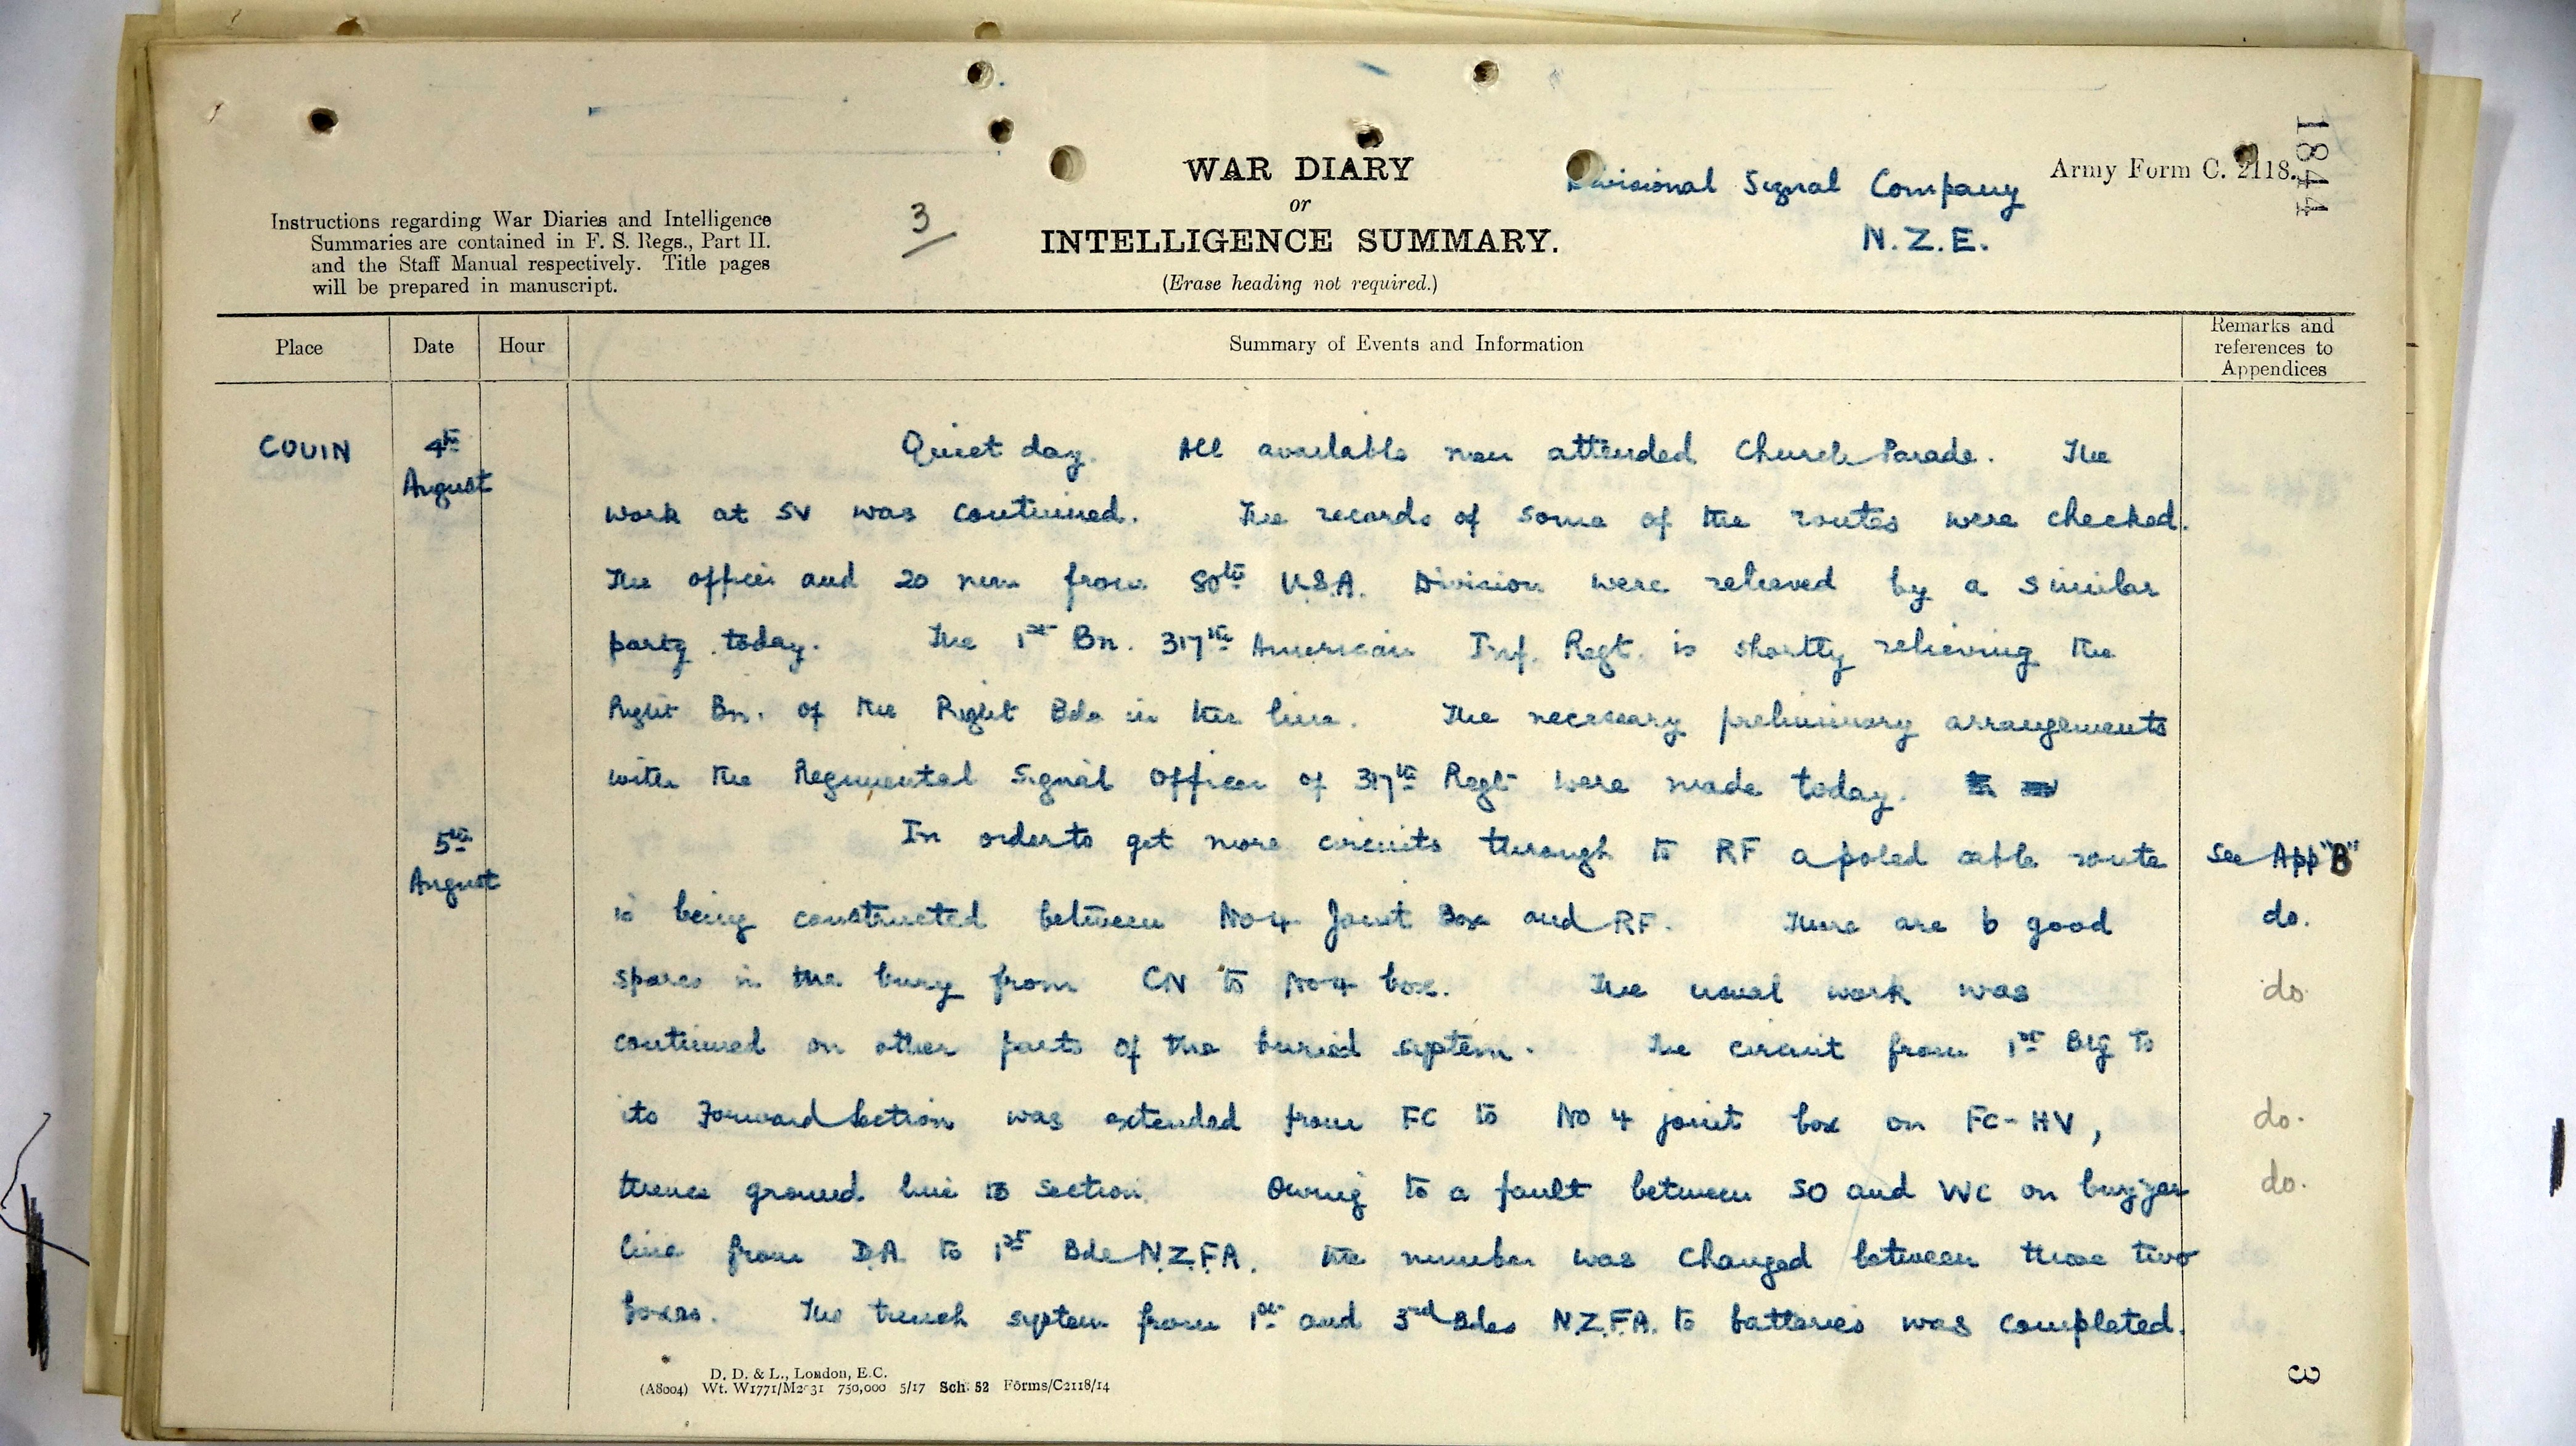 1844
WAR DIARY
or
INTELLIGENCE SUMMARY.
(Erase heading not required.)
Divisional Signal Company
N.Z.E.
Army Form C. 2118.
Instructions regarding War Diaries and Intelligence
Summaries are contained in F. S. Regs., Part II.
and the Staff Manual respectively. Title pages
will be prepared in manuscript.
3
Place Date Hour Summary of Events and Information Remarks and
references to
Appendices
COUIN 4th August Quiet day. All available men attended Church Parade. The
work at SV was continued. The records of some of the routes were checked.
The officer and 20 men from 80th U.S.A. Division were relieved by a similar
party today. The 1st Bn. 317th American Inf. Regt. is shortly relieving the
Right Bn. of the Right Bde in the line. The necessary preliminary arrangements
with the Regimental Signal Officer of 317th Regt were made today.
5th August In order to get more circuits through to RF a poled cable route see App "B"
is being constructed between No 4 Joint Box and RF. There are 6 good do.
spares in the bury from CN to No 4 box. The usual work was do
continued on other parts of the buried system. The circuit from 1st Bty to
its Forward Section was extended from FC to No 4 joint box on FC-HV, do.
thence ground line to section. Owing to a fault between SO and WC on do.
line from D.A. to 1st Bde N.Z.F.A. the number was changed between these two
boxes. The trench system from 1st and 3rd Bdes N.Z.F.A. to batteries was completed.
D. D. & L., London, E.C.
(A8004) Wt. W1771/M2031 750,000 5/17 Sch. 52 Forms/C2118/14
3